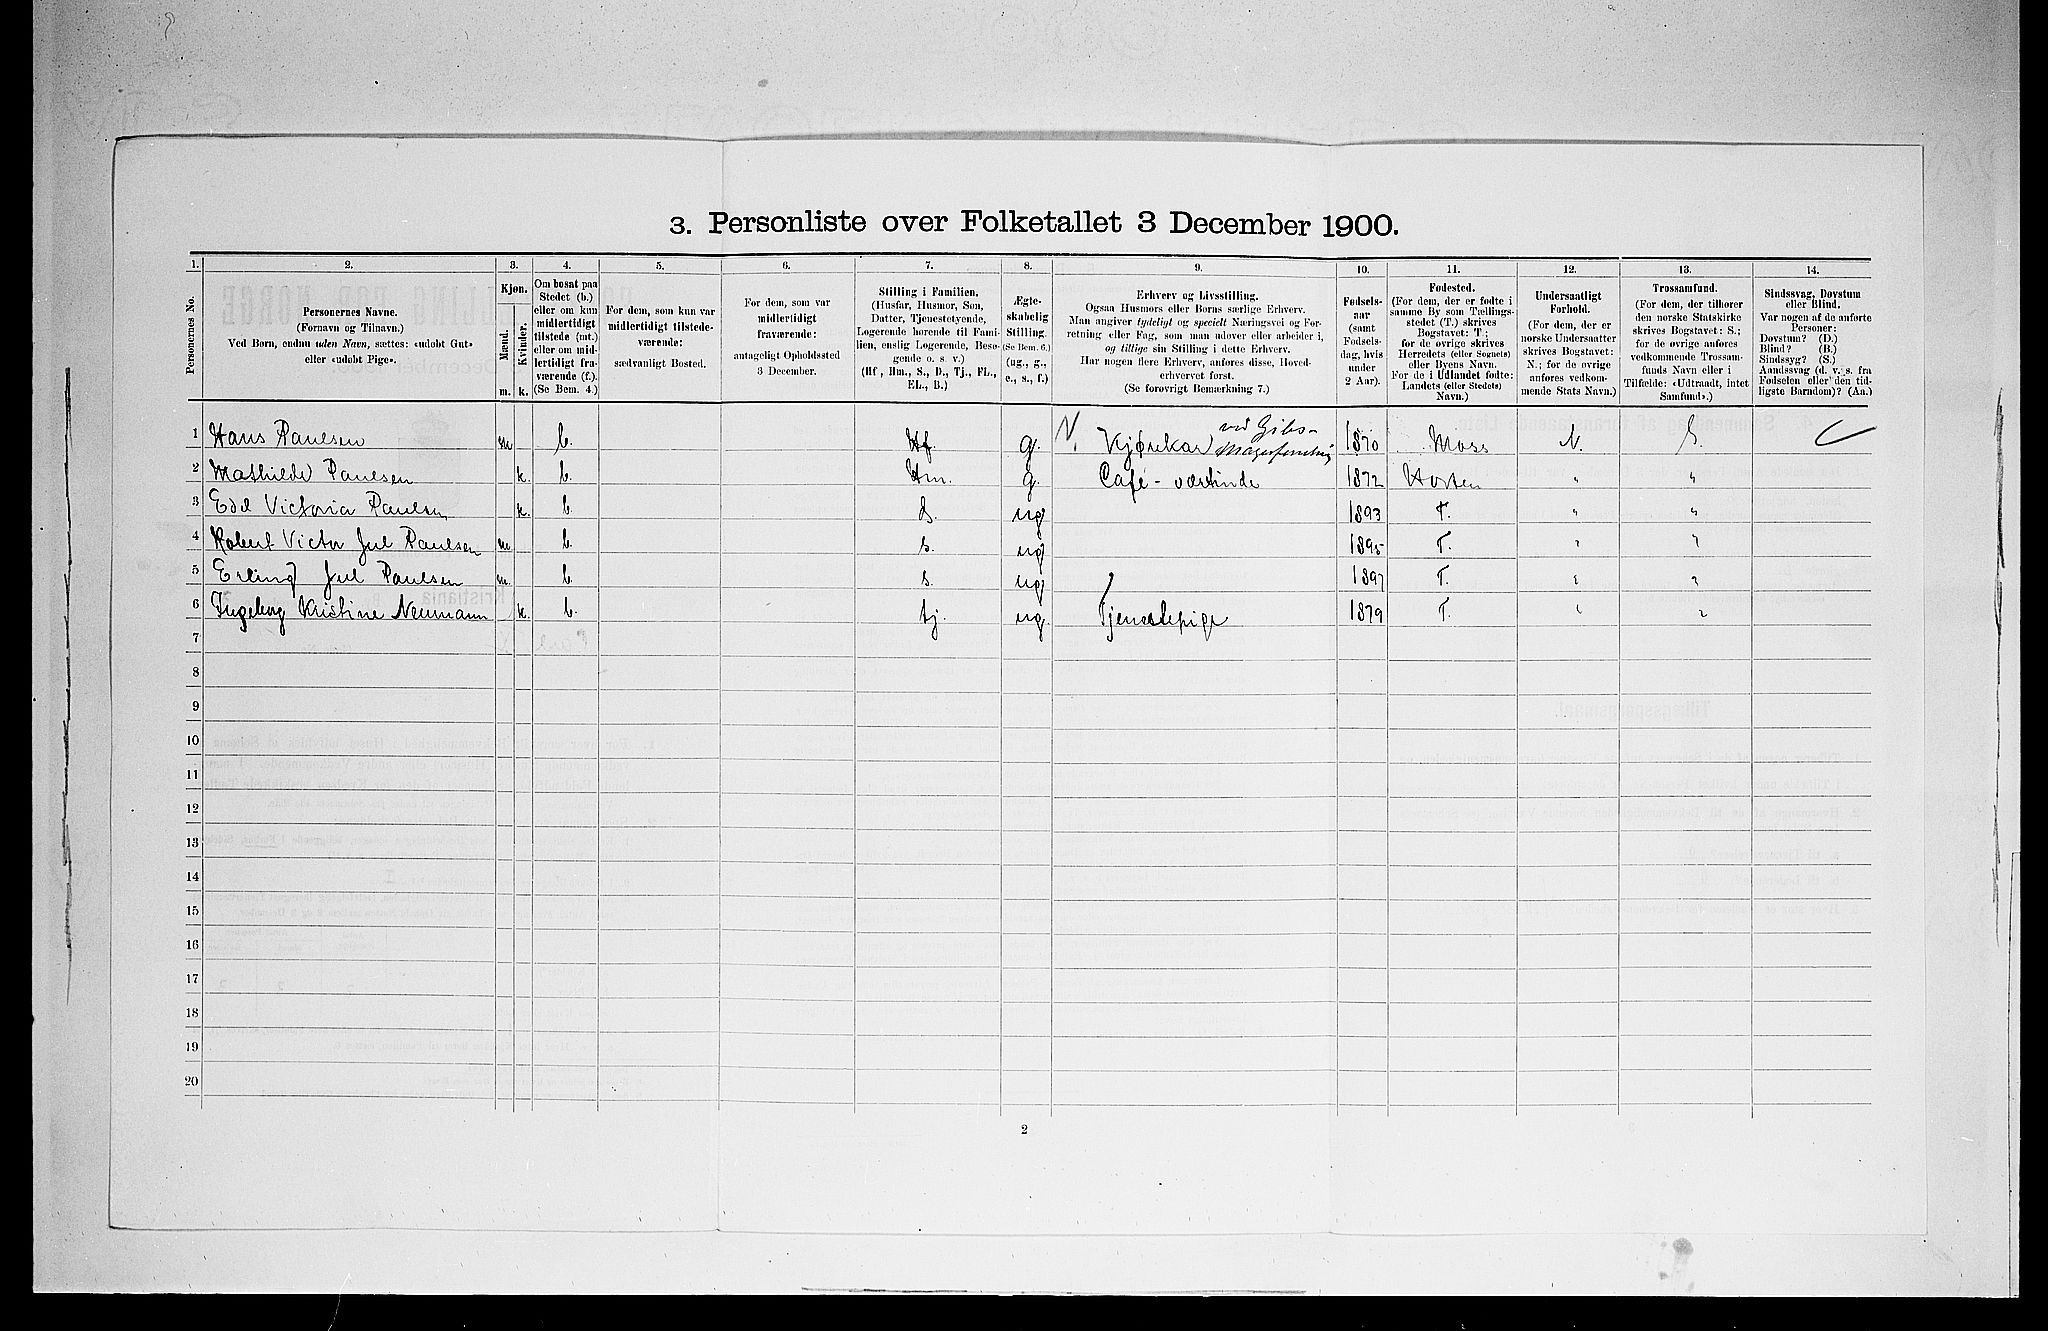 3. Personliste over Folketallet 3 December 1900.
1. 2. 3. 4. 5. 6. 7. 8. 9. 10. 11. 12. 13. 14.
Personernes No.
Personernes Navne.
(Fornavn og Tilnavn.)
Ved Børn, endnu uden Navn, sættes: «udøbt Gut»
eller «udøbt Pige».
Kjøn.
Mænd.
Kvinder.
m. k.
Om bosat paa
Stedet (b.)
eller om kun
midlertidigt
tilstede (mt.)
eller om mid-
lertidigt fra-
værende (f.).
(Se Bem. 4.)
For dem, som kun var
midlertidigt tilstede-
værende:
sædvanligt Bosted.
For dem, som var
midlertidigt
fraværende:
antageligt Opholdssted
3 December.
Stilling i Familien.
(Husfar, Husmor, Søn,
Datter, Tjenestetyende,
Logerende hørende til Fami-
lien, enslig Logerende, Besø-
gende o. s. v.)
(Hf., Hm., S., D., Tj., FL.,
EL., B.)
Ægte-
skabelig
Stilling.
(Se Bem. 6.)
(ug., g.,
e., s., f.)
Erhverv og Livsstilling.
Ogsaa Husmors eller Børns særlige Erhverv.
Man angiver tydeligt og specielt Næringsvei og For-
retning eller Fag, som man udøver eller arbeider i,
og tillige sin Stilling i dette Erhverv.
Har nogen flere Erhverv, anføres disse, Hoved-
erhvervet først.
(Se forøvrigt Bemærkning 7.)
Fødsels-
aar
(samt
Fødsels-
dag, hvis
under
2 Aar).
Fødested.
(For dem, der er fødte i
samme By som Tællings-
stedet (T.) skrives
Bogstavet: T.;
for de øvrige skrives
Herredets (eller Sognets)
eller Byens Navn.
For de i Udlandet fødte:
Landets (eller Stedets)
Navn.)
Undersaatligt
Forhold.
(For dem, der er
norske Undersaatter
skrives Bogstavet:
N.; for de øvrige
anføres vedkom-
mende Stats Navn.)
Trossamfund.
(For dem, der tilhører
den norske Statskirke
skrives Bogstavet: S.;
for de øvrige anføres
vedkommende Trossam-
funds Navn eller i
Tilfælde: «Udtraadt, intet
Samfund».)
Sindssvag, Døvstum
eller Blind.
Var nogen af de anførte
Personer:
Døvstum? (D.)
Blind? (B.)
Sindssyg? (S.)
Aandssvag (d. v. s. fra
Fødselen eller den tid-
ligste Barndom)? (Aa.)
1 Hans Paulsen m b. Hf. g. N. Kjørekar ved Gibs- 1870 Moss N. S.
2 Mathilde Paulsen k. b. Hm. g. Café - værtinde 1872 Horten " "
3 Edel Victoria Paulsen k. b. d. ug 1893 T. " "
4 Robert Victor Jul Paulsen m b. s. ug 1895 T. " "
5 Erling Jul Paulsen m. b. s. ug 1897 T. " "
6 Ingeborg Kristine Neumann k. b. tj. ug. Tjenestepige 1879 T. " "
7
8
9
10
11
12
13
14
15
16
17
18
19
20
2